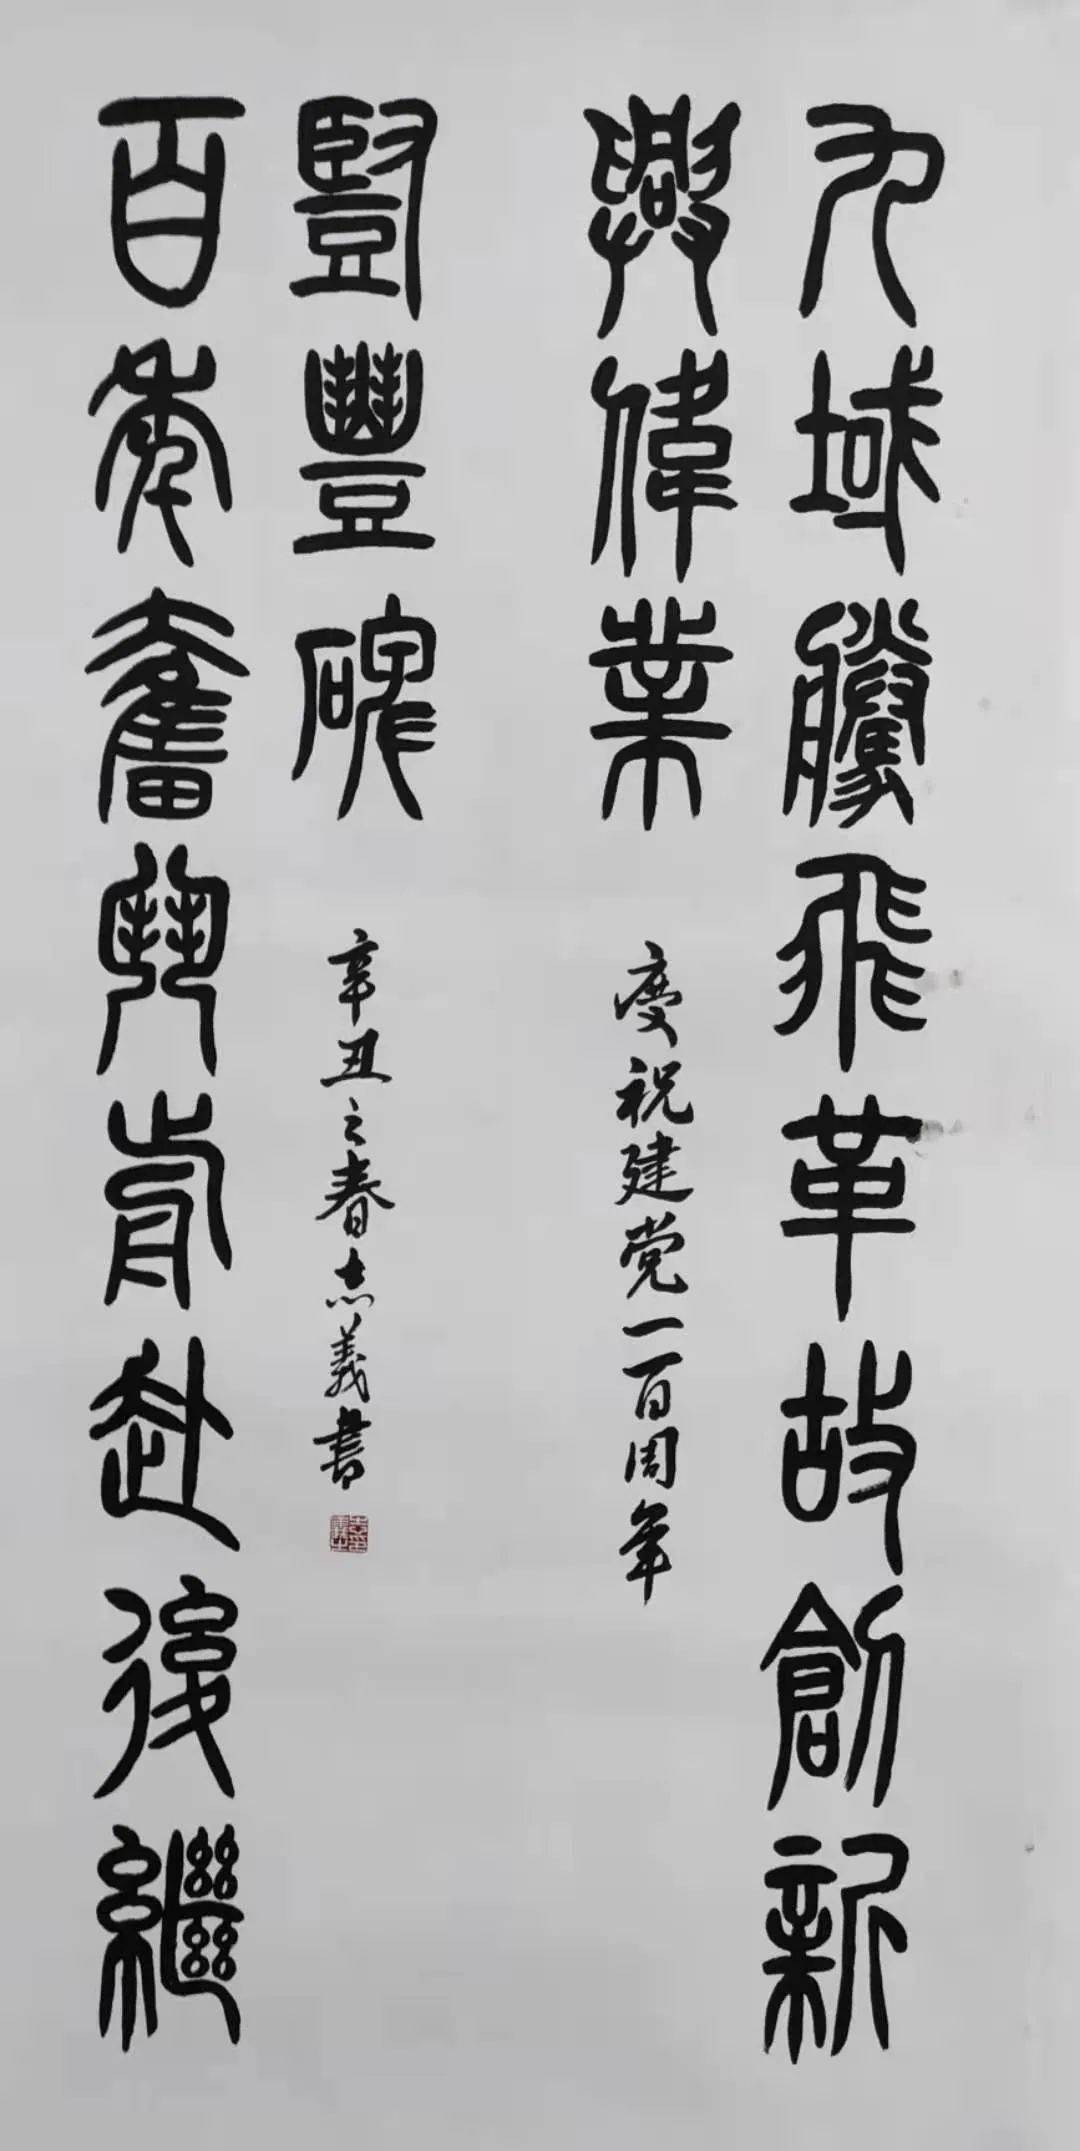 九域騰飛革故創新
興偉業
慶祝建党一百周年
百年奮鬥前赴後繼
豎豐碑
辛丑之春志義書